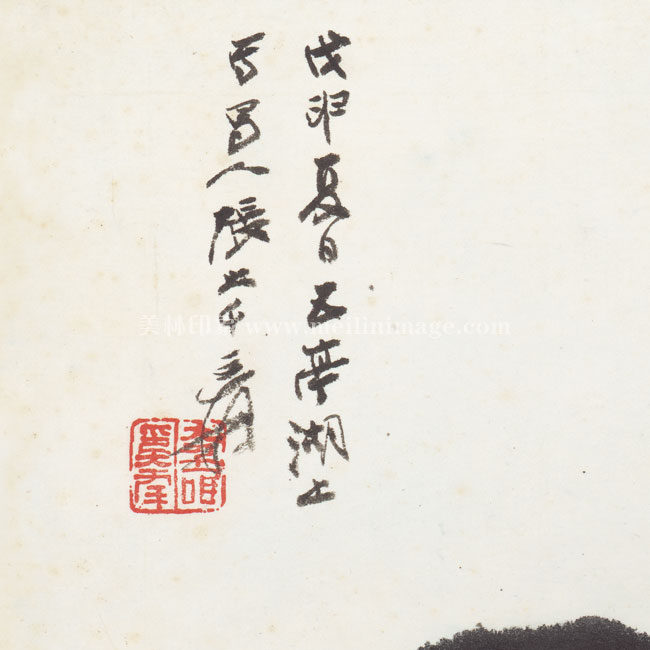 戊申夏日五亭湖上
寫蜀人張大千爰
美林印 www.meilinimage.com